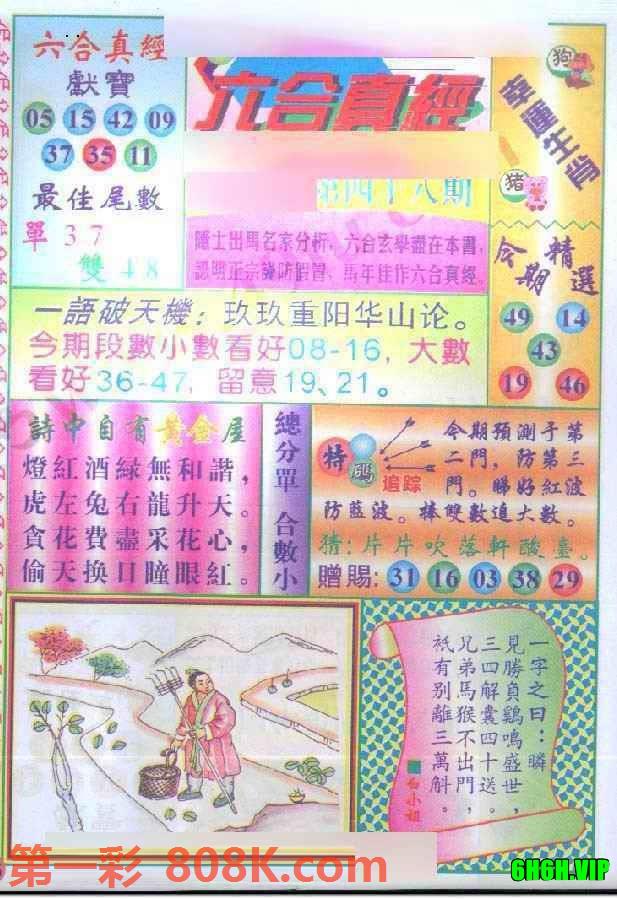 六合真經
獻寶
05 15 42 09
37 35 11
最佳尾數
單 3 7
雙 4 8
六合真經
第四十八期
隱士出馬名家分析，六合玄學盡在本書，
認明正宗謹防假冒，馬年佳作六合真經。
狗
幸運生肖
猪
今期精選
49 14
43
19 46
一語破天機：玖玖重阳华山论。
今期段數小數看好08-16，大數
看好36-47，留意19、21。
詩中自有黃金屋
燈紅酒緑無和諧，
虎左兔右龍升天。
貪花費盡采花心，
偷天换日瞳眼紅。
總分單 合數小
特碼追踪
今期預測于第
二門，防第三
門。睇好紅波
防藍波。棒雙數追大數。
猜：片片吹落軒
贈賜：31 16 03 38 29
一字之曰：瞬
見勝負鷄鳴盛世，
三四解囊四十送。
兄弟馬猴不出門，
衹有别離三萬斛。
白小姐
第一彩 808K.com
6H6H.VIP